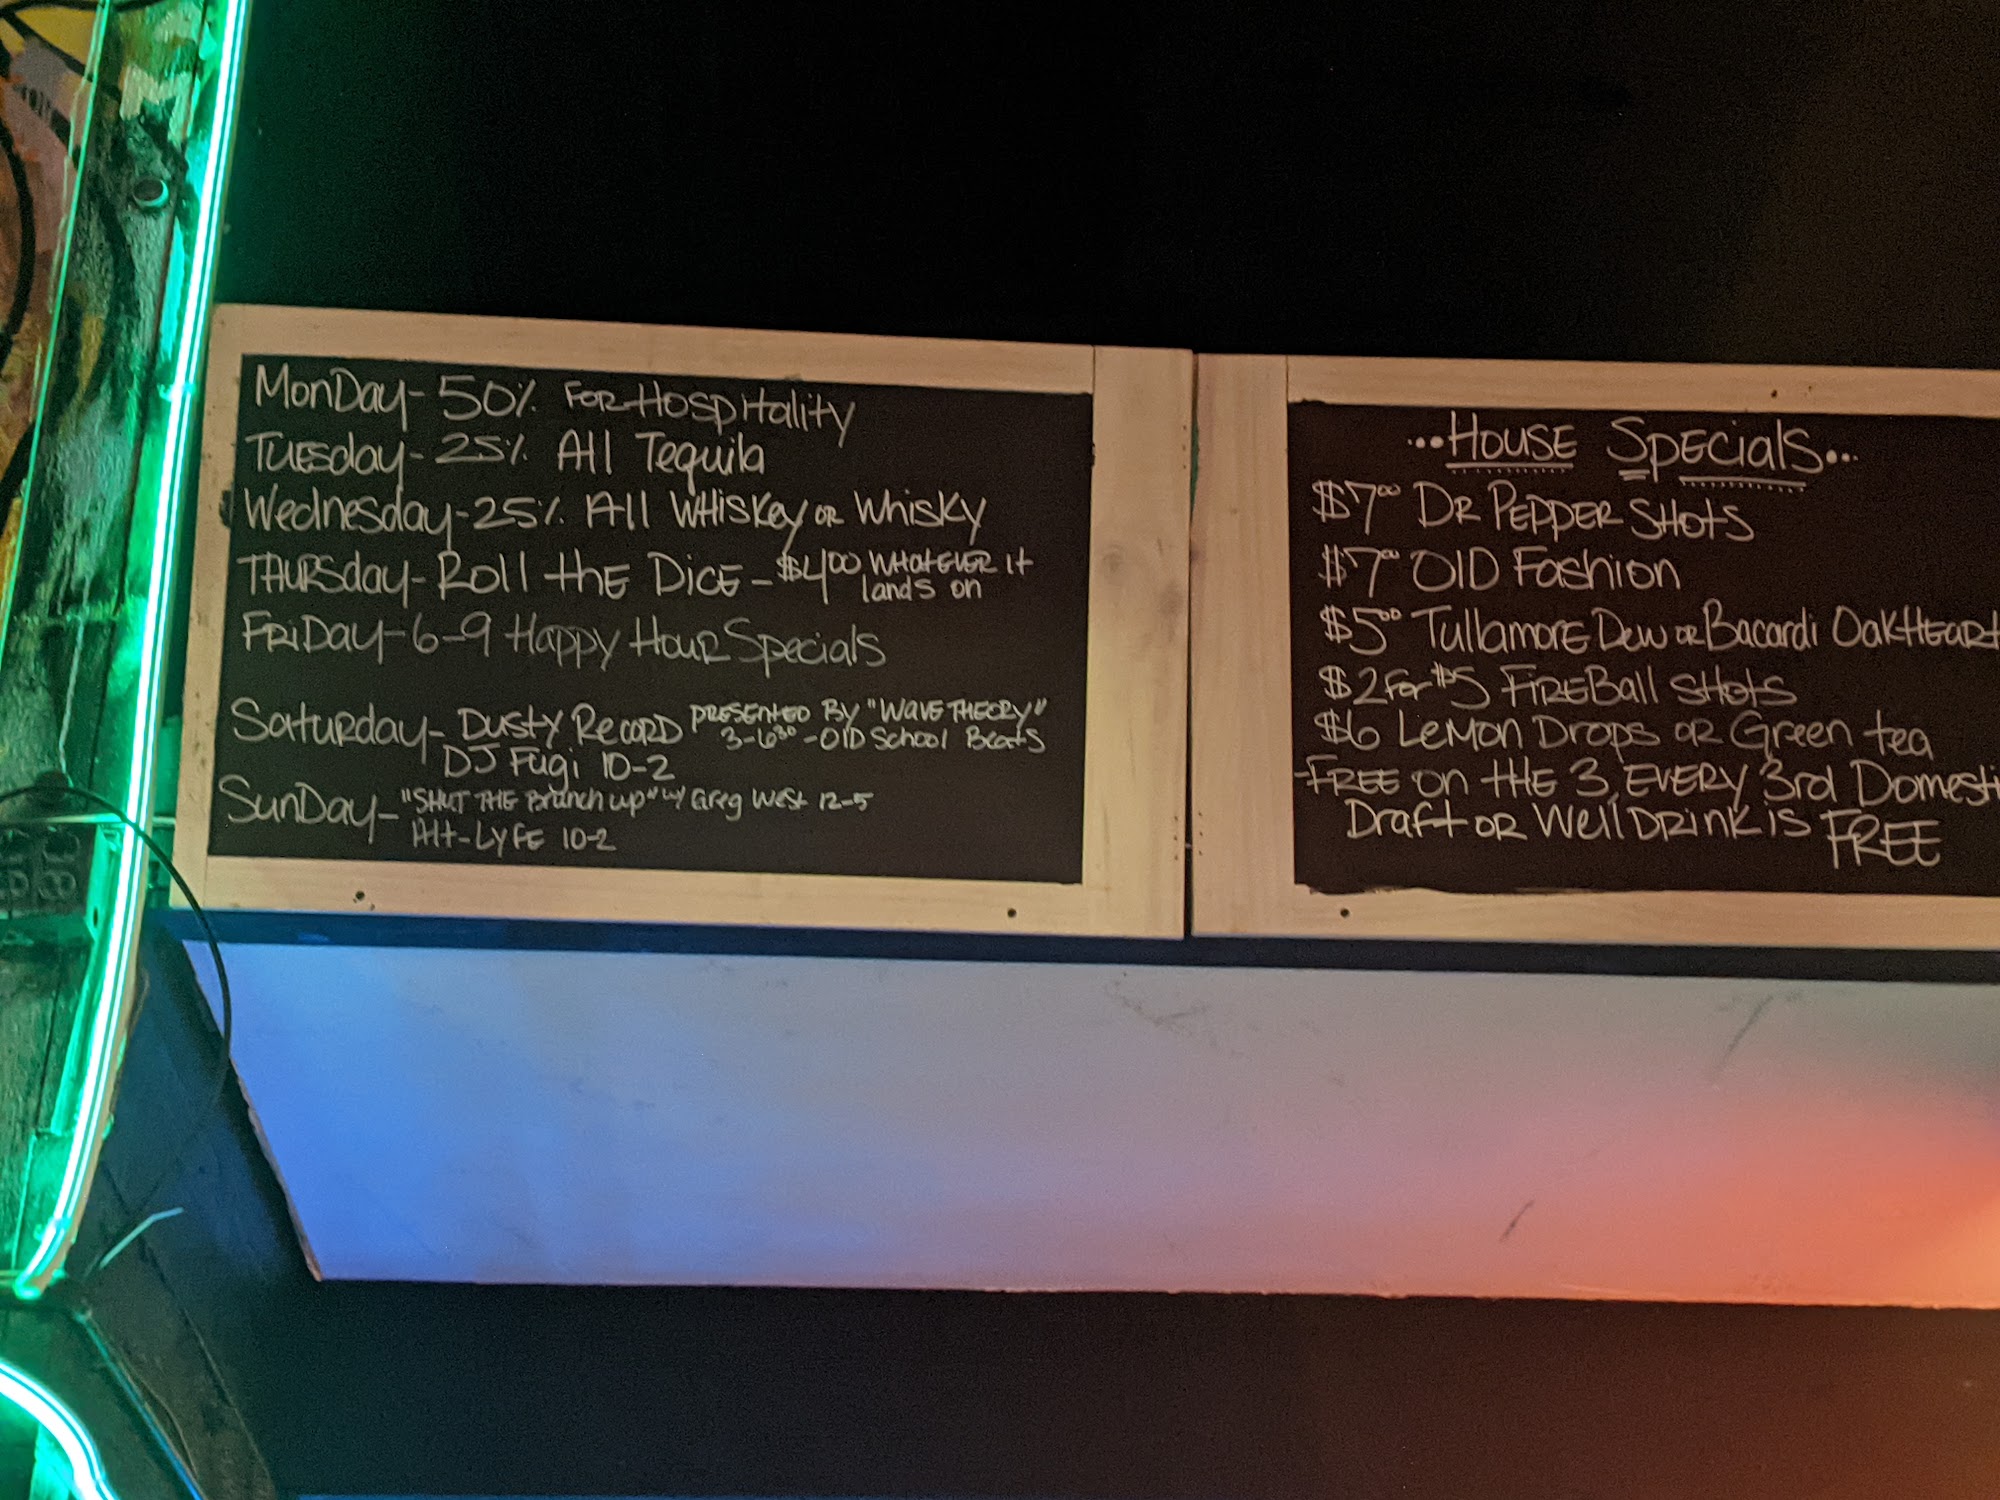 MonDay- 50% For Hospitality
Tuesday- 25% All Tequila
Wednesday- 25% All Whiskey or Whisky
Thursday- Roll the Dice - $4.00 whatever it
lands on
Friday- 6-9 Happy Hour Specials
Saturday- Dusty Record presented by "Wave Theory"
3-6:30 - Old School Beats
DJ Fugi 10-2
Sunday- "Shut the Brunch up" w/ Greg West 12-5
Alt-Lyfe 10-2
...House Specials...
$7.00 Dr Pepper Shots
$7.00 Old Fashion
$5.00 Tullamore Dew or Bacardi OakHeart
$2 for $5 FireBall Shots
$6 Lemon Drops or Green tea
-Free on the 3, Every 3rd Domesti
Draft or Well Drink is FREE